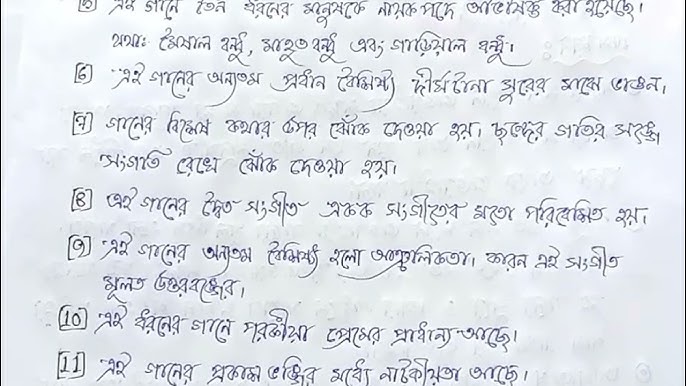 5) এই গানে তিন ধরনের মানুষকে নায়ক পদে অভিষিক্ত করা হয়েছে।
যথা: মৈষাল বন্ধু, মাহুত বন্ধু এবং গাড়িয়াল বন্ধু।
[6] এই গানের অন্যতম প্রধান বৈশিষ্ট্য দীর্ঘ টানা সুরের মাঝে ভাঙন।
[7] গানের বিশেষ কথার উপর ঝোঁক দেওয়া হয়। ছন্দের গতির সঙ্গে
সংগতি রেখে ঝোঁক দেওয়া হয়।
[8] এই গানের দ্বৈত সংগীত একক সংগীতের মতো পরিবেশিত হয়।
[9] এই গানের অন্যতম বৈশিষ্ট্য হলো আঞ্চলিকতা। কারন এই সংগীত
মূলত উত্তরবঙ্গের।
[10] এই ধরনের গানে পরকীয়া প্রেমের প্রাধান্য আছে।
[11] এই গানের প্রকাশ ভঙ্গির মধ্যে নাটকীয়তা আছে।